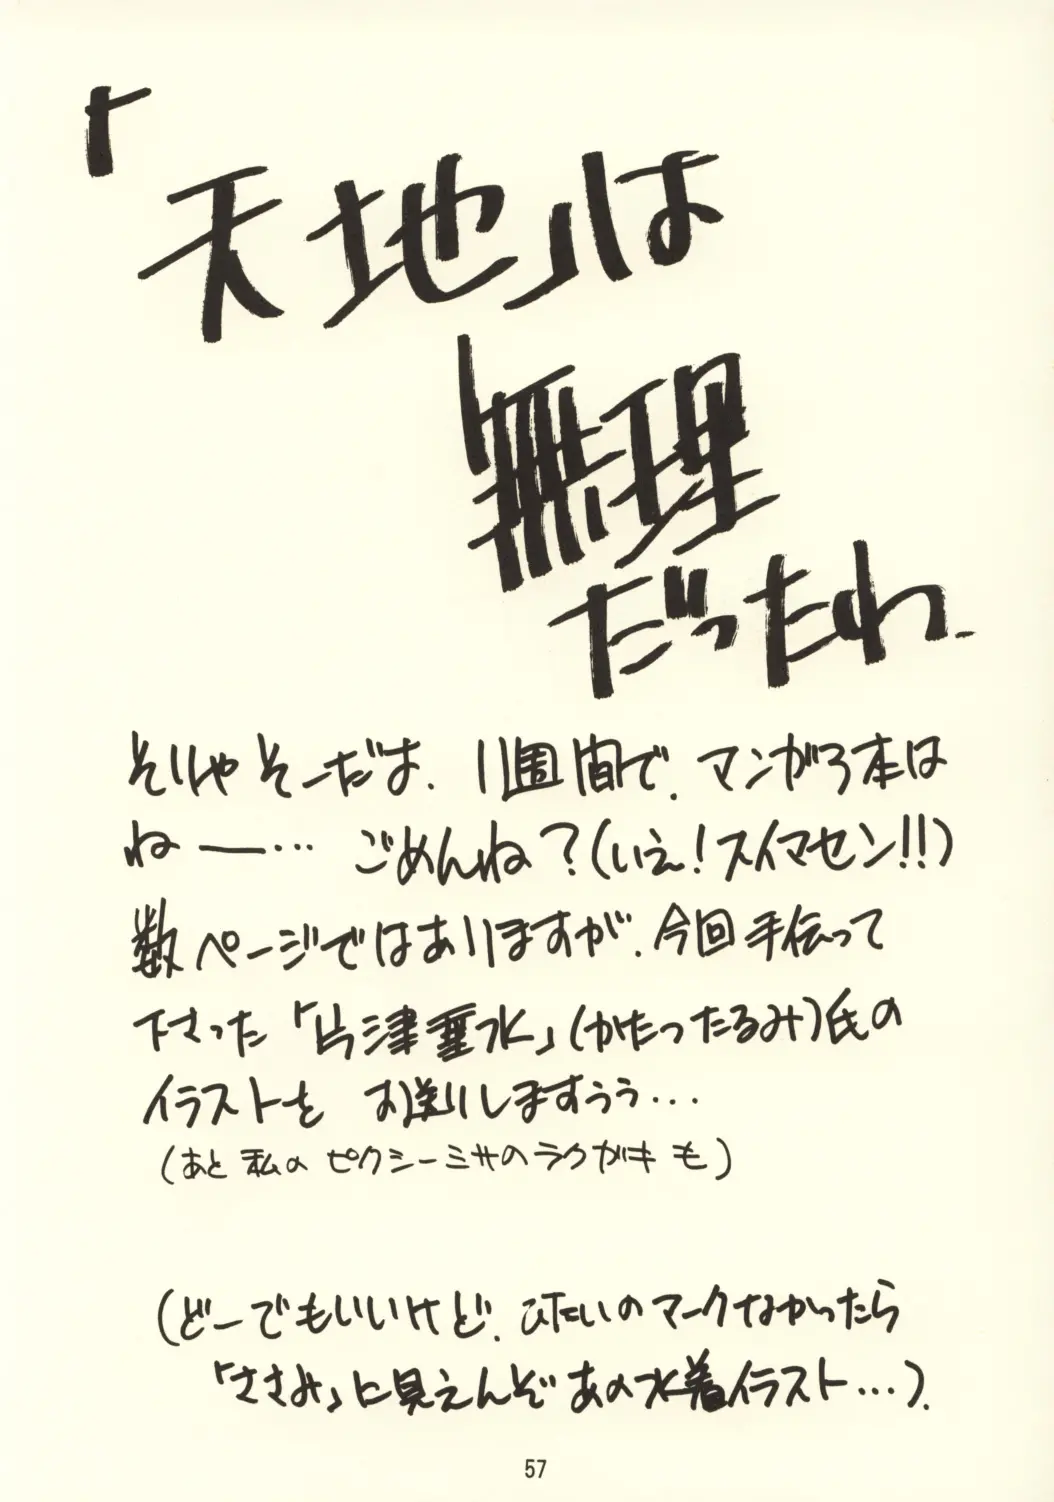 「天地」は
無理
だったね
そりゃそーだは、1週間で、マンガ3本は
ねー… ごめんね?(いえ!スイマセン!!)
数ページではありますが、今回手伝って
下さった「片津垂水」(かたつたるみ)氏の
イラストを お送りしますぅぅ…
(あと私の ピクシーミサのラクガキ も)
(どーでもいいけど、ひたいのマークなかったら
「ささみ」に見えんぞあの水着イラスト…).
57